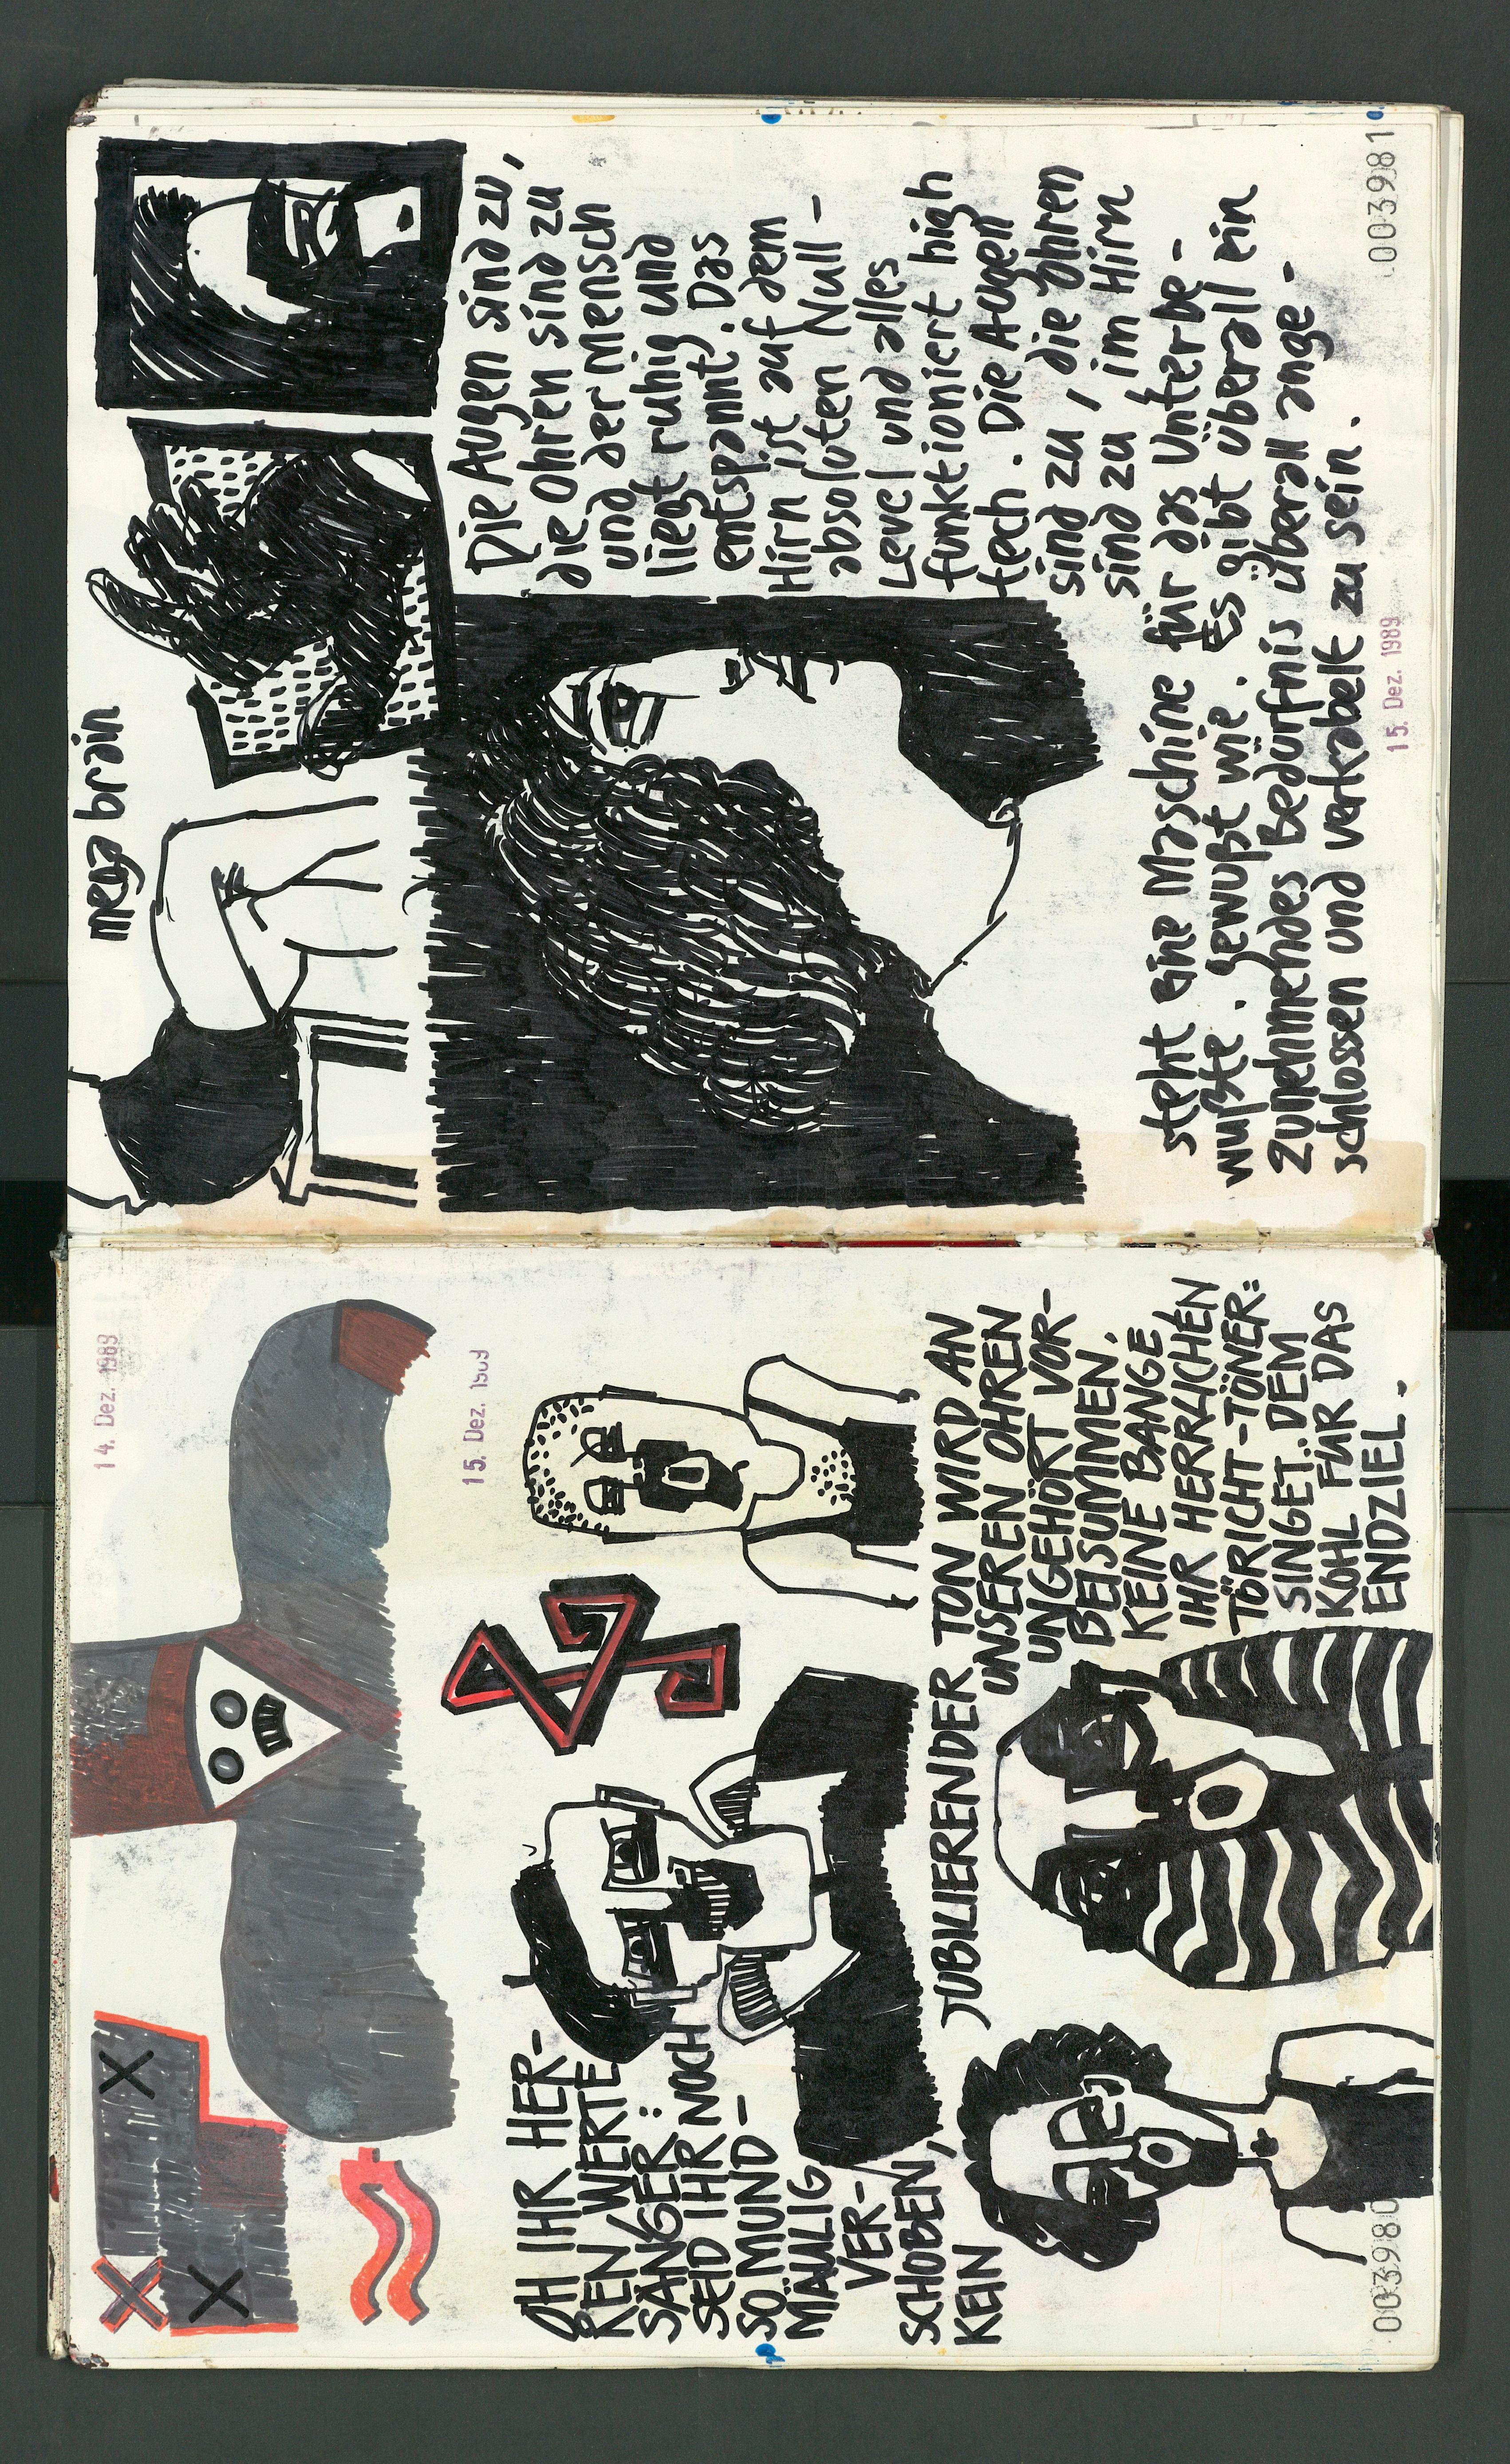 14. Dez. 1989
15. Dez. 1989
OH IHR HER-
REN WERTE
SÄNGER:
SEID IHR NOCH
SO MUND-
MÄULIG
VER-
SCHOBEN,
KEIN
JUBILIERENDER TON WIRD AN
UNSEREN OHREN
UNGEHÖRT VOR-
BEISUMMEN.
KEINE BANGE
IHR HERRLICHEN
TÖRICHT-TÖNER:
SINGET DEM
KOHL FÜR DAS
ENDZIEL.
003980
mega brain
Die Augen sind zu,
die Ohren sind zu
und der Mensch
liegt ruhig und
entspannt. Das
Hirn ist auf dem
absoluten Null-
Level und alles
funktioniert high
tech. Die Augen
sind zu, die Ohren
sind zu, im Hirn
steht eine Maschine für das Unterbe-
wußte. gewußt wie. Es gibt überall ein
zunehmendes Bedürfnis überall ange-
schlossen und verkabelt zu sein.
15. Dez. 1989
003981